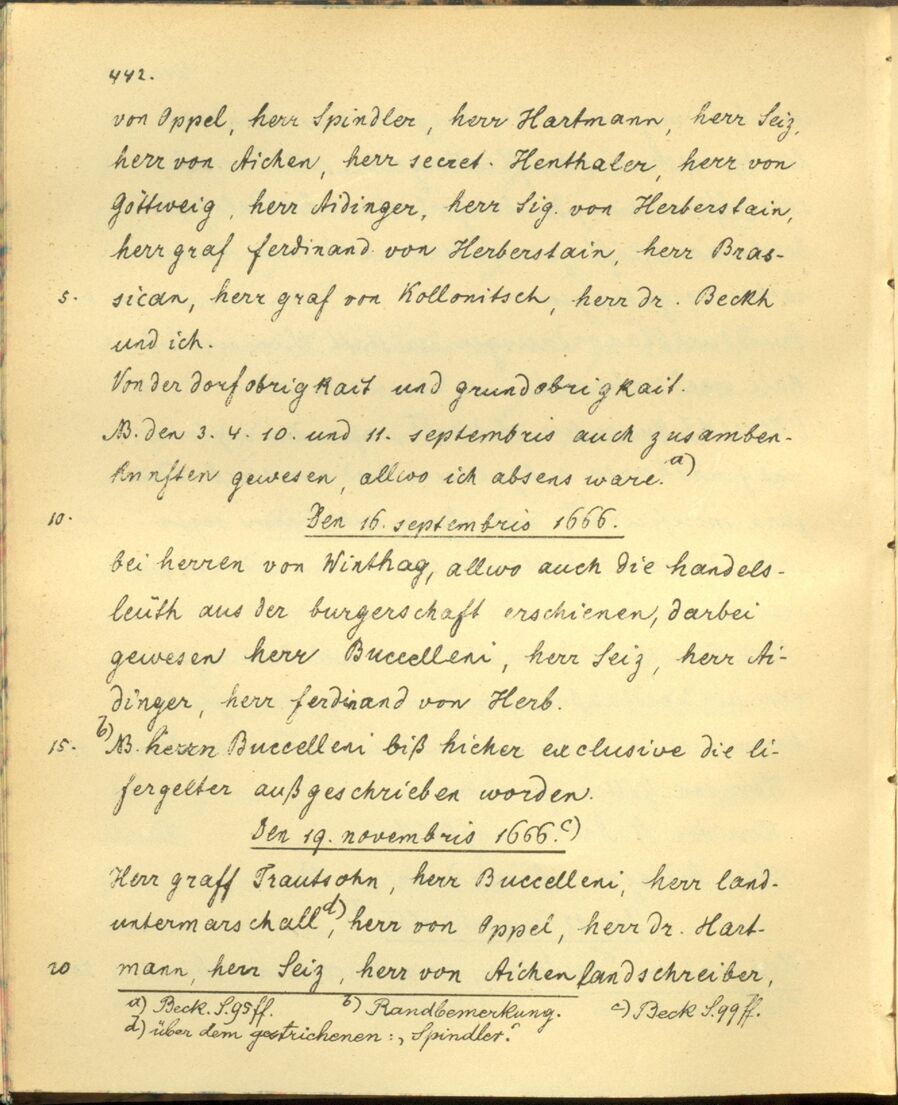 442.
von Oppel, herr Spindler, herr Hartmann, herr Seiz,
herr von Aichen, herr secret. Henthaler, herr von
Göttweig, herr Aidinger, herr Sig. von Herberstain,
herr graf ferdinand von Herberstain, herr Bras-
5. sican, herr graf von Kollonitsch, herr dr. Beckh
und ich.
Von der dorfobrigkait und grundobrigkait.
NB. den 3. 4. 10. und 11. septembris auch zusamben-
kunften gewesen, allwo ich absens ware. a)
10. Den 16. septembris 1666.
bei herren von Winthag, allwo auch die handels-
leüth aus der burgerschaft erschienen, darbei
gewesen herr Buccelleni, herr Seiz, herr Ai-
dinger, herr ferdinand von Herb.
15. b) NB. herrn Buccelleni biß hieher exclusive die li-
fergelter außgeschrieben worden.
Den 19. novembris 1666. c)
Herr graff Trautsohn, herr Buccelleni, herr land-
untermarschall d), herr von Oppel, herr dr. Hart-
20 mann, herr Seiz, herr von Aichen landschreiber,
a) Beck. S. 95 ff. b) Randbemerkung. c) Beck S. 99 ff.
d) über dem gestrichenen: „Spindler“